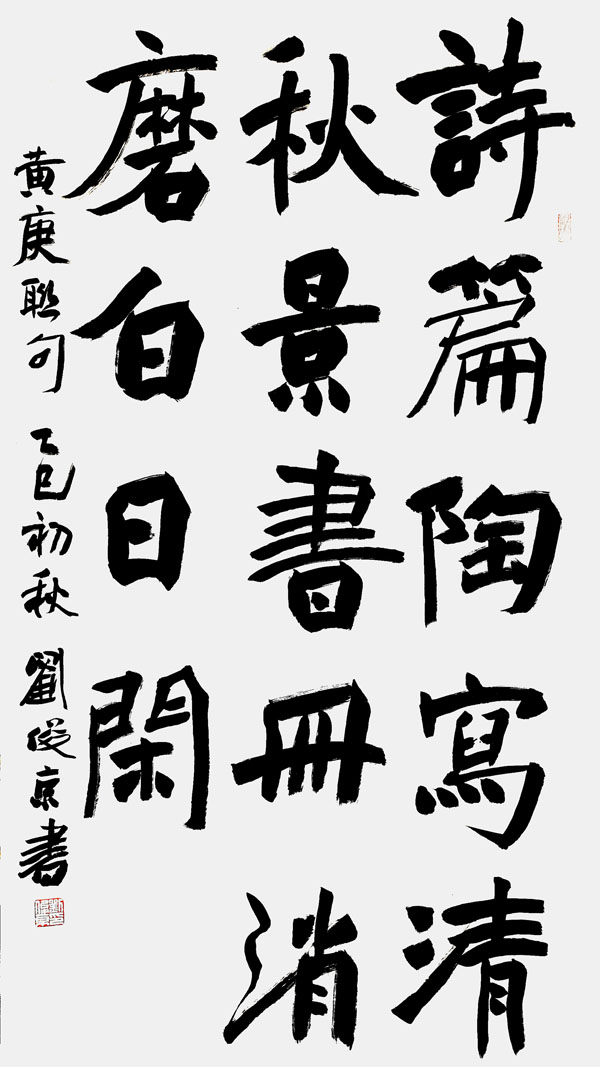 詩篇陶寫清
秋景書冊消
磨白日閑
黄庚聯句 乙巳初秋 劉俊京書